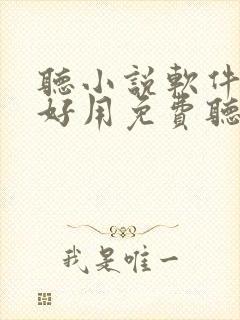 聽小說軟件
好用免費聽
我是唯一